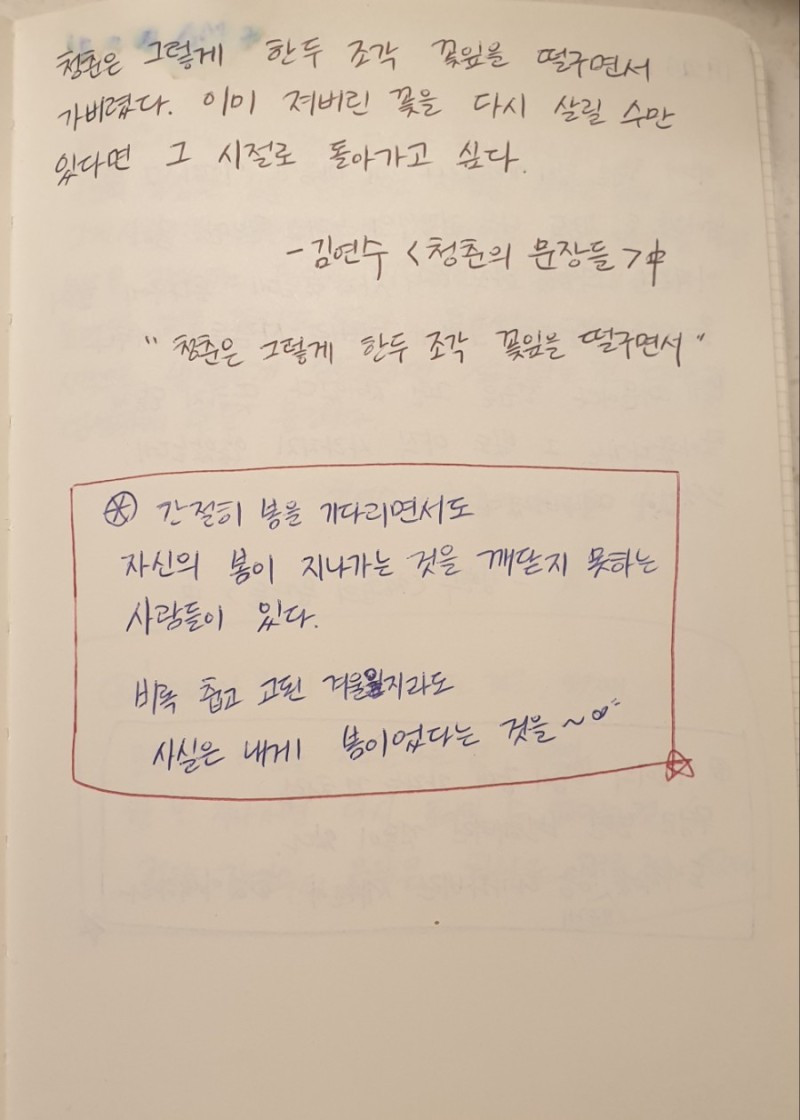 청춘은 그렇게 한두 조각 꽃잎을 떨구면서
가버렸다. 이미 져버린 꽃을 다시 살릴 수만
있다면 그 시절로 돌아가고 싶다.
- 김연수 <청춘의 문장들> 中
"청춘은 그렇게 한두 조각 꽃잎을 떨구면서"
간절히 봄을 기다리면서도
자신의 봄이 지나가는 것을 깨닫지 못하는
사람들이 있다.
비록 춥고 고된 겨울일지라도
사실은 내게 봄이었다는 것을~